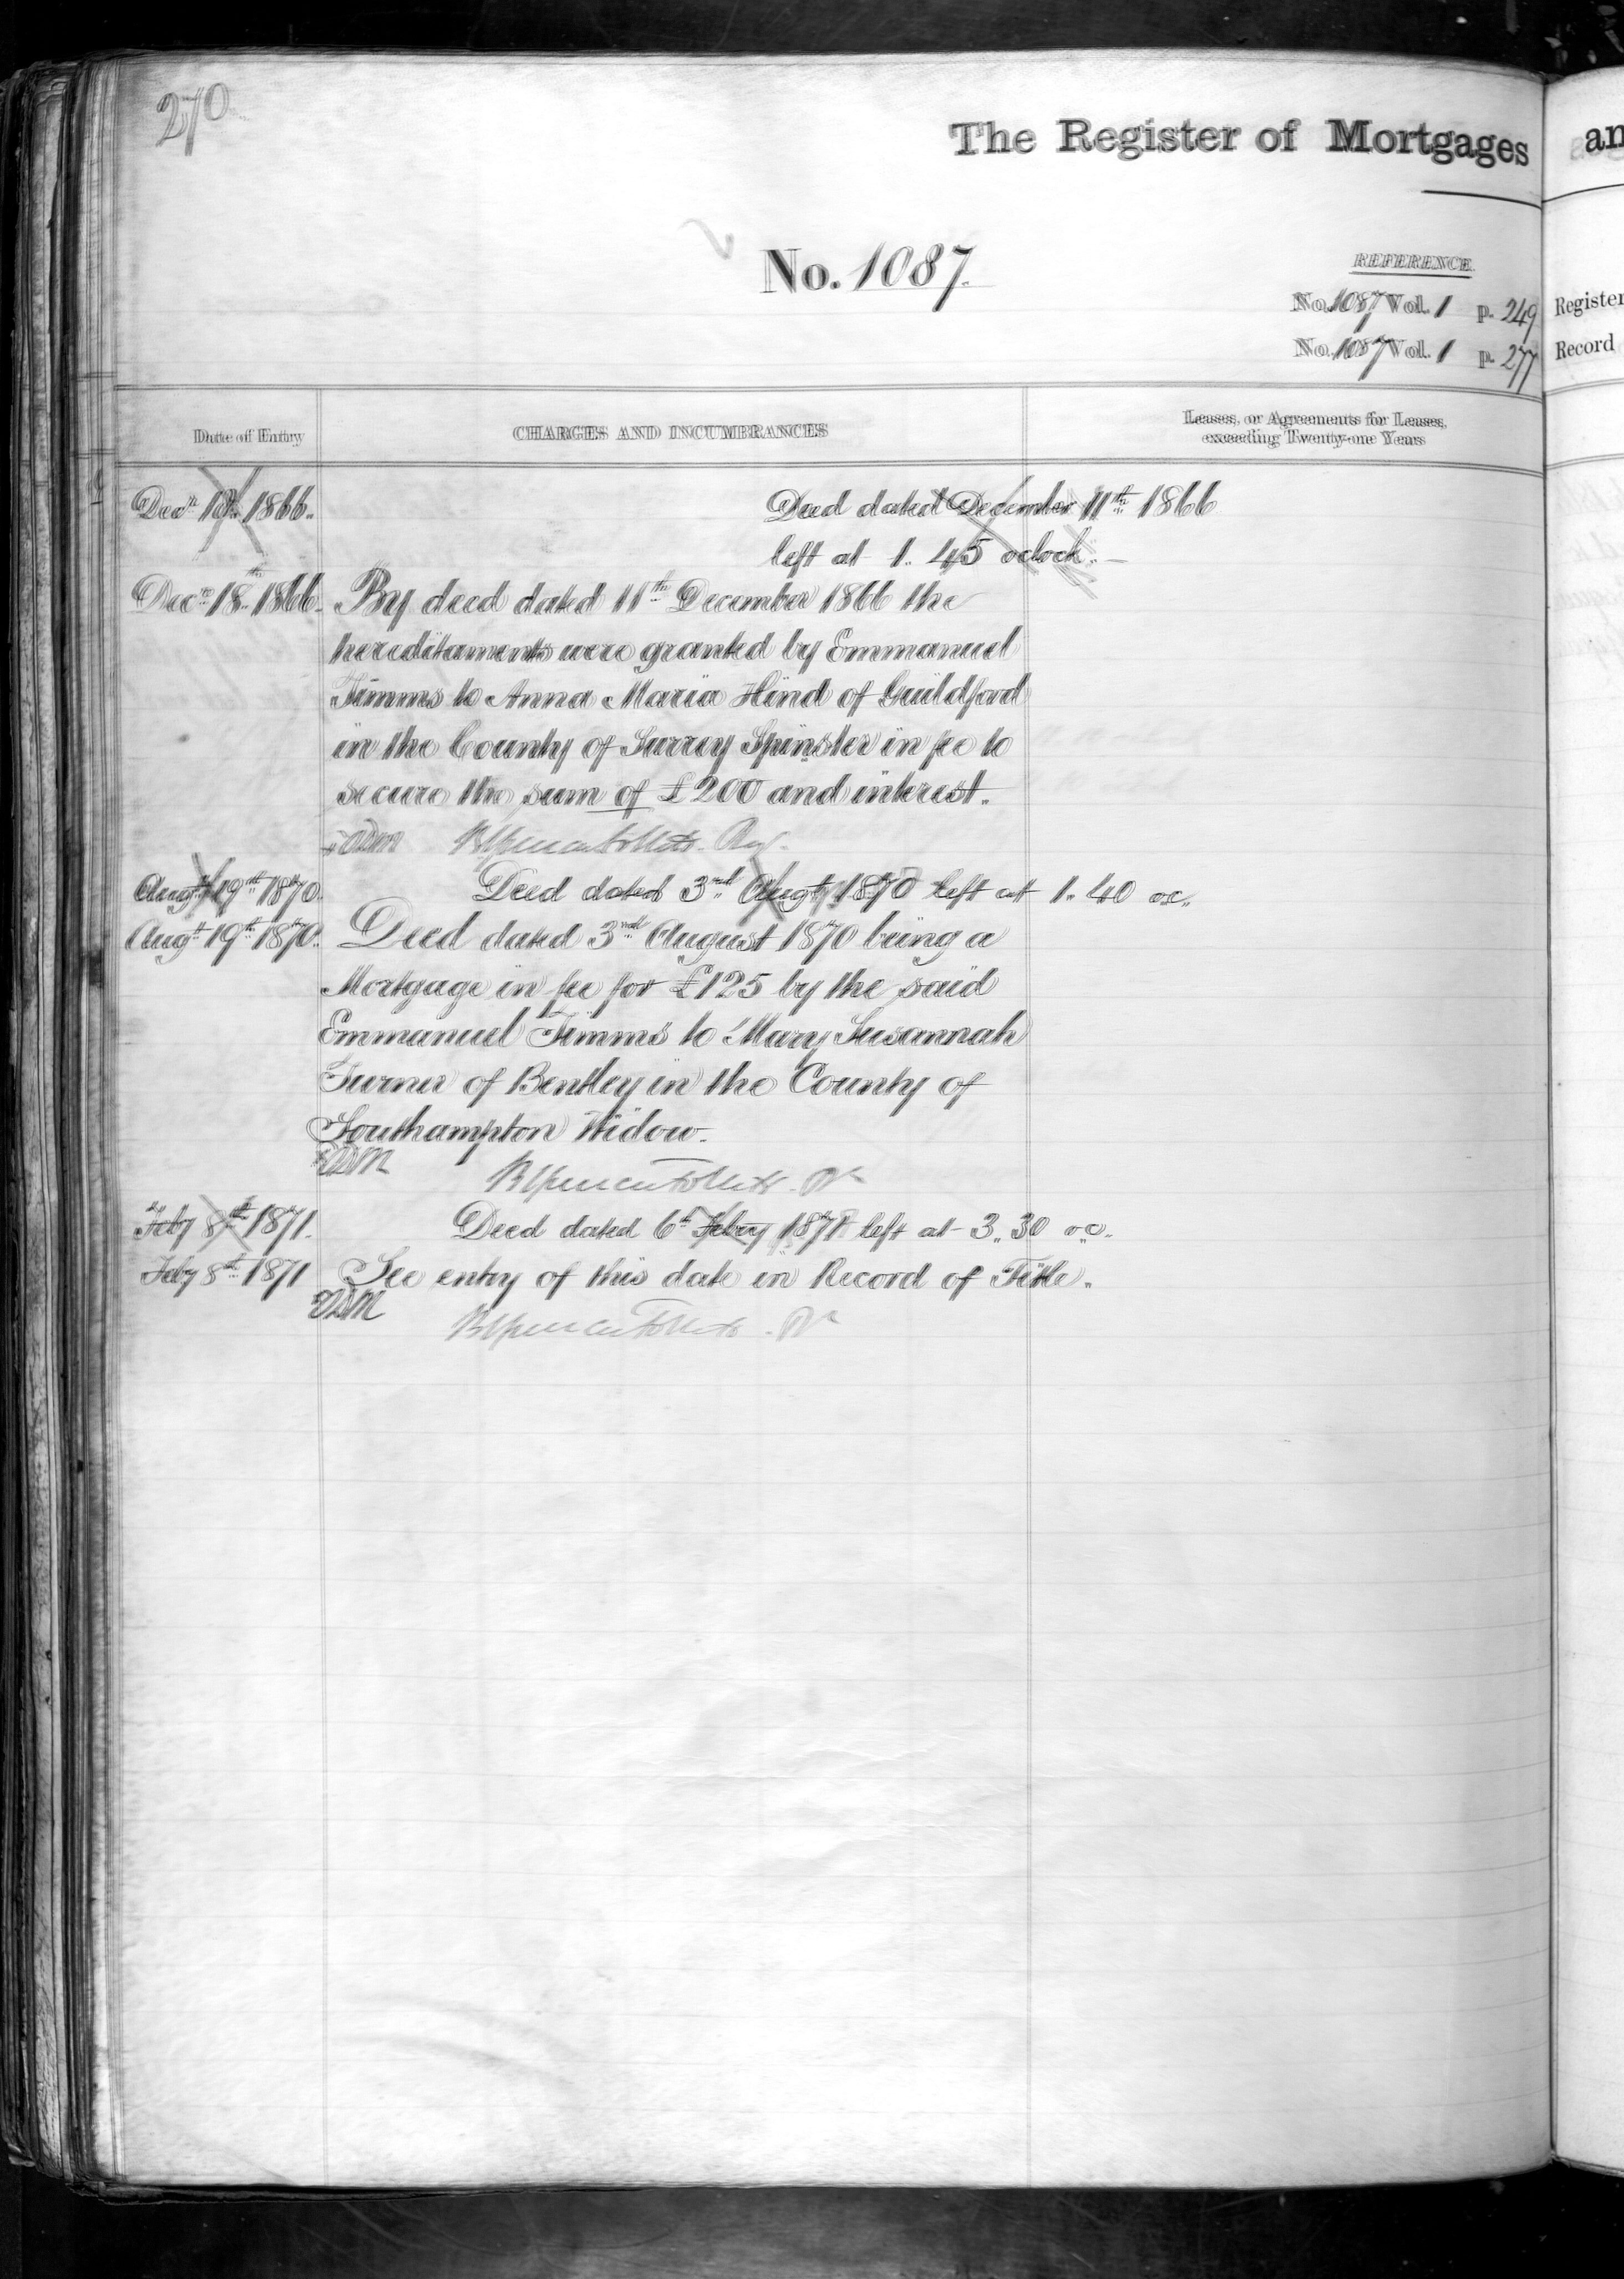 270
The Register of Mortgages
an
No. 1087.
REFERENCE.
No. 1087 Vol. 1 p. 249
Register
No. 1087 Vol. 1 p. 277
Record
Date of Entry
CHARGES AND INCUMBRANCES
Leases, or Agreements for Leases,
exceeding Twenty-one Years
1866. Deed dated December 11th 1866
left at 1. 45 oclock. —
18th 1866. By deed dated 11th December 1866 the
hereditaments were granted by Emmanuel
Timms to Anna Maria Hind of Guildford
in the County of Surrey Spinster in fee to
secure the sum of £200 and interest.
Augt 19th 1870. Deed dated 3rd Augt 1870 left at 1. 40 oc.
Augt 19th 1870. Deed dated 3rd August 1870 being a
Mortgage in fee for £125 by the said
Emmanuel Timms to Mary Susannah
Turner of Bentley in the County of
Southampton Widow.
Feby 8th 1871. Deed dated 6th Febry 1871 left at 3. 30 oc.
Feby 8th 1871 See entry of this date in Record of Title.